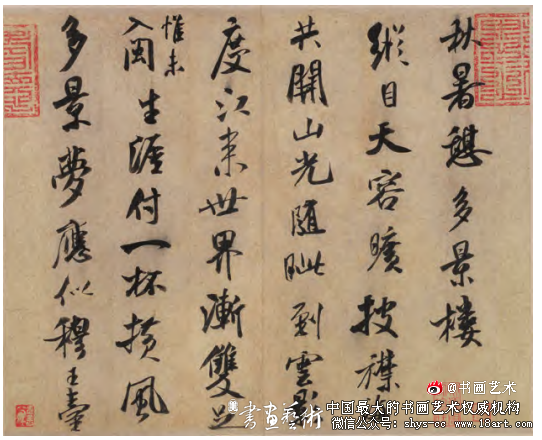 秋暑憩多景樓
縱目天容曠披襟
共開山光随眦到雲
度江来世界漸雙足
惟未
入閩生涯付一杯横風
多景夢應似穆王臺
@书画艺术
書画藝術
中国最大的书画艺术权威机构
微信公众号:shys-cc 官网:www.18art.com